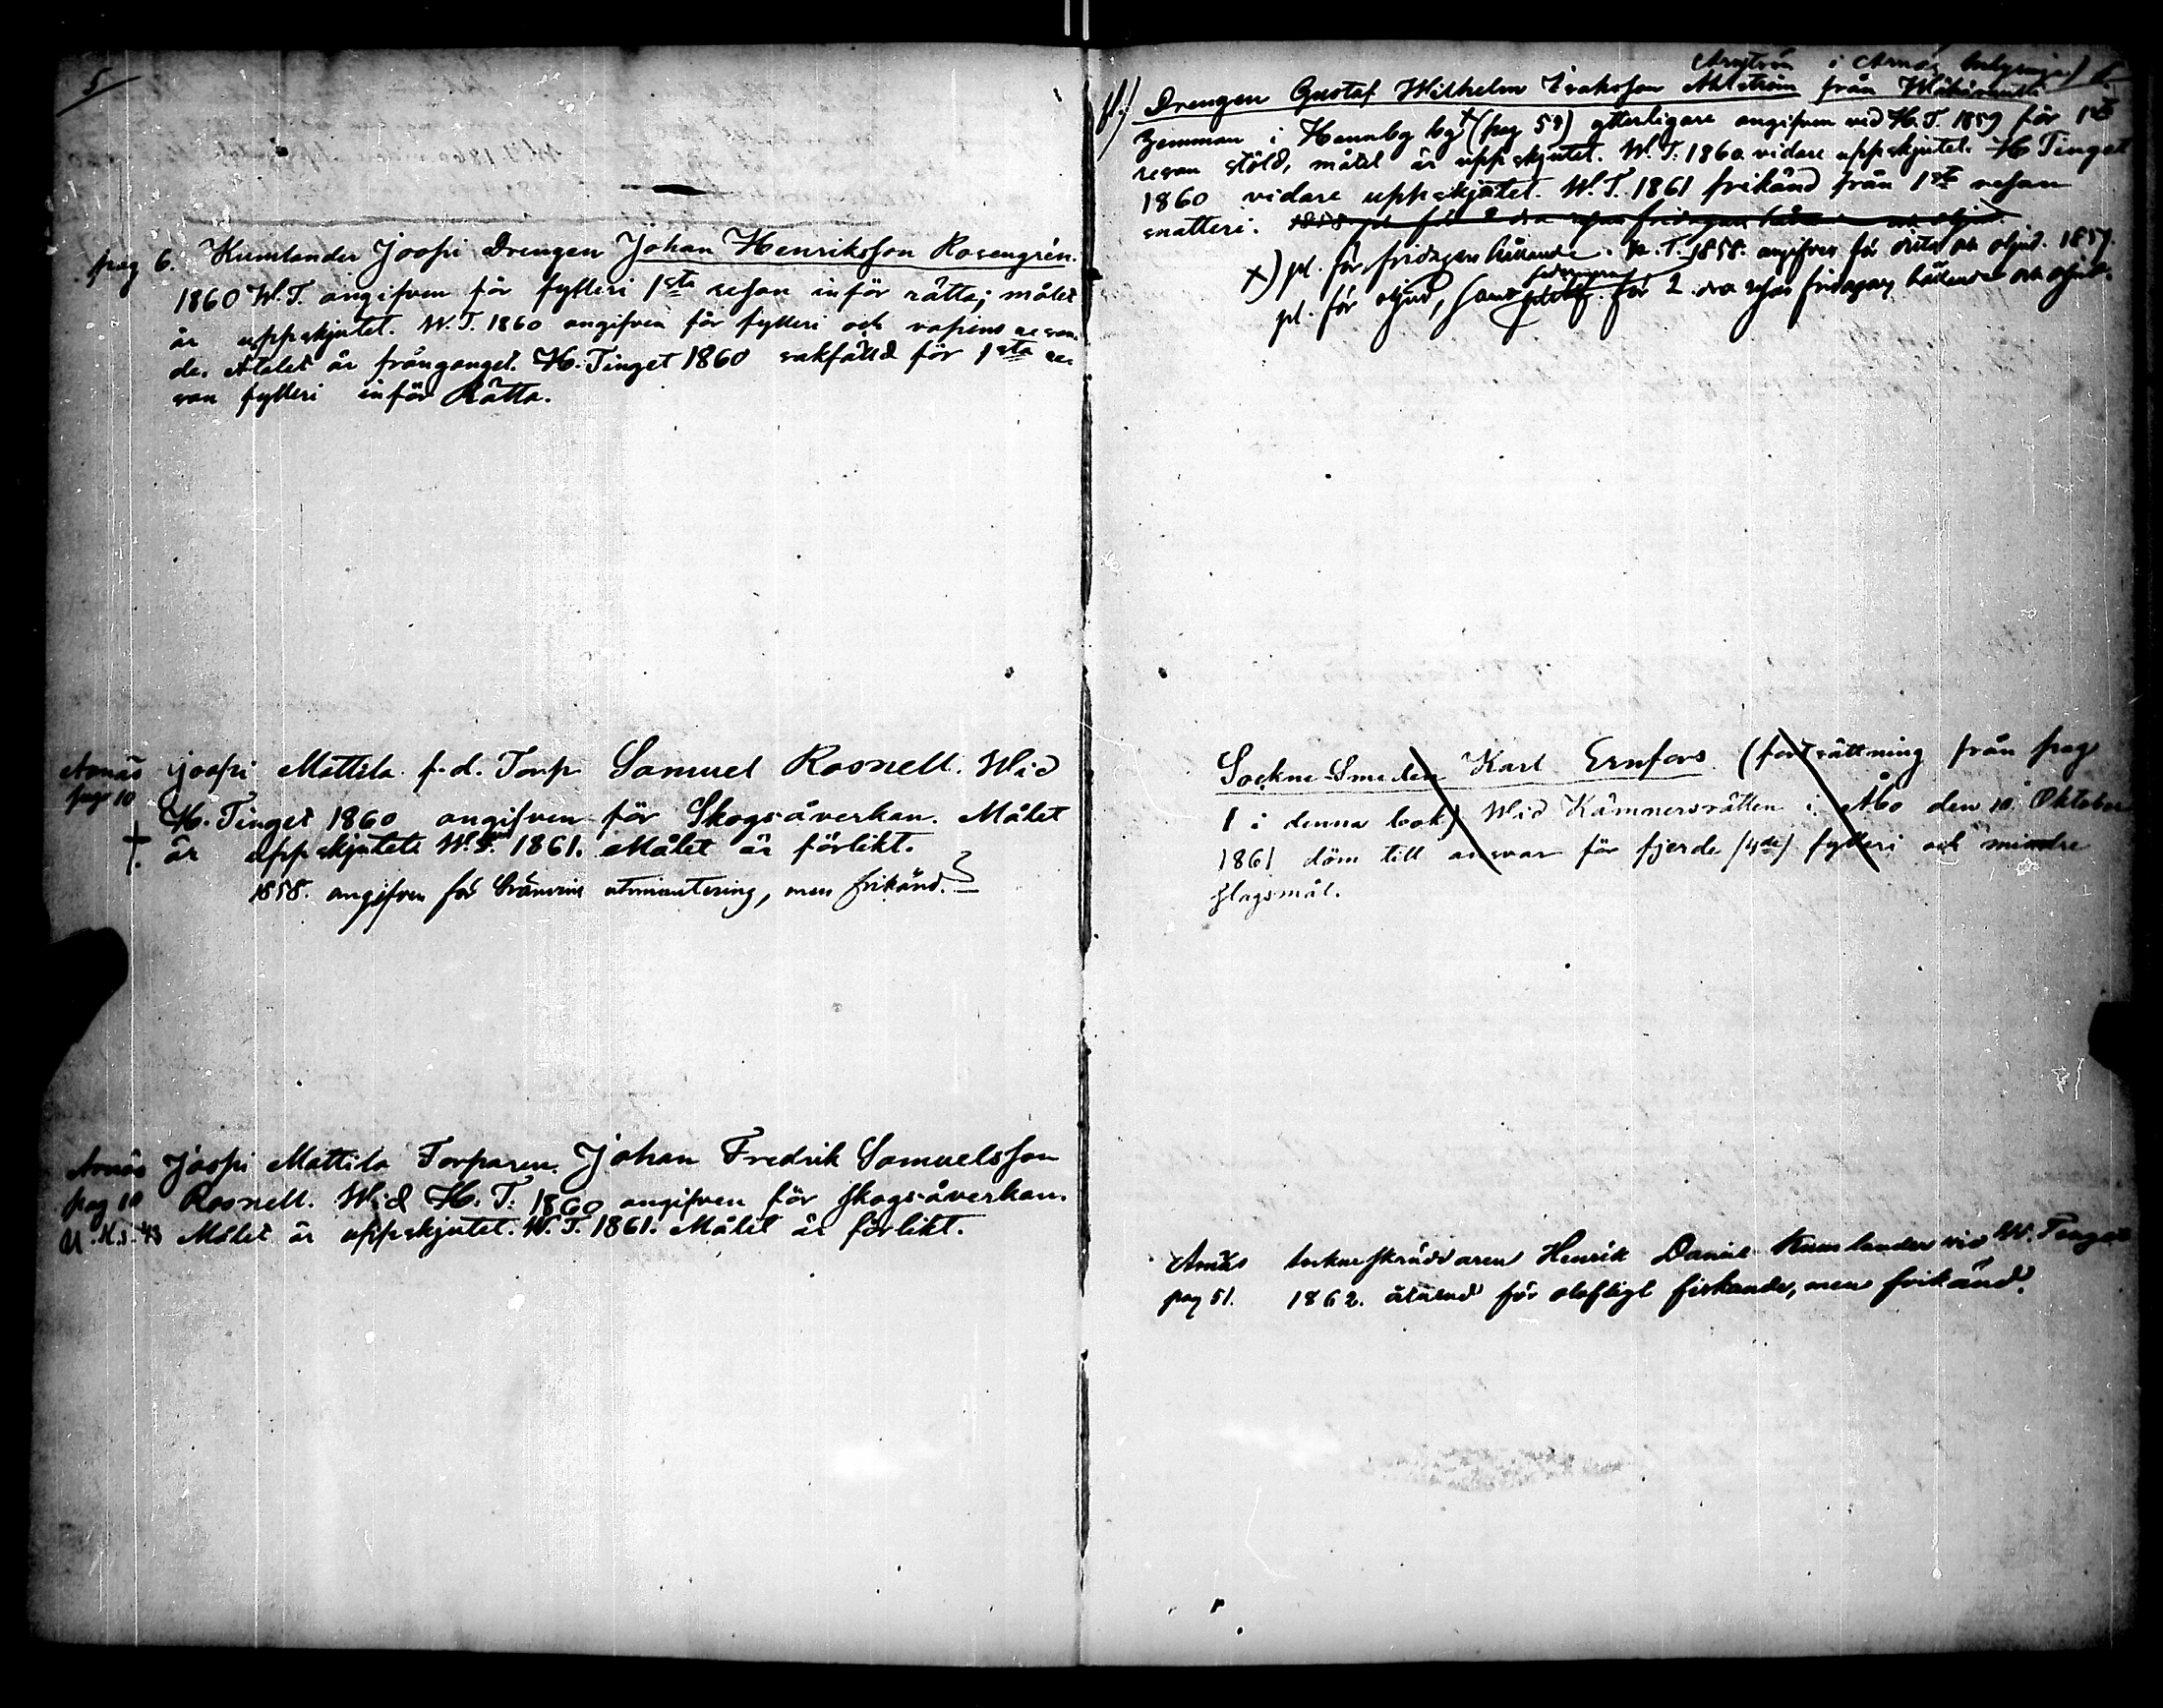 5
pag 6. Kumlander Joopi Drengen Johan Henriksson Rosengrén.
1860 W.T. angifven för fylleri 1sta resan inför rätta; målet
är uppskjutet. W.T. 1860 angifven för fylleri och
de. Åtalet är frångånget. H. Tinget 1860 sakfälld för 1sta re-
san fylleri inför Rätta.
Arnäs Joopi Mattila f.d. Torp Samuel Rosnell. Wid
pag 10
H. Tinget 1860 angifven för Skogsåverkan. Målet
† är uppskjutet W.T. 1861. Målet är förlikt.
1858. angifven för bränvins utminutering, men frikänd.
Arnäs Joopi Mattila Torparen Johan Fredrik Samuelsson
pag 10 Rosnell. Wid H.T. 1860 angifven för skogsåverkan.
Målet är uppskjutet. W.T. 1861. Målet är förlikt.
i Arnäs
Drengen Gustaf Wilhelm Isaksson Ahlström från
i Hannby by † (pag 58) ytterligare angifven vid H.T 1859 för 1sta
resan stöld, målet är uppskjutet. W.T. 1860 vidare uppskjutet. H Tinget
1860 vidare uppskjutet. W.T. 1861 frikänd från 1sta resan
snatteri.
×) pl. för fridagsv hållande. W.T. 1858. angifven för och oljud. 1859.
pl. för oljud, samt för 2 dra resan
Sockne-Smeden Karl Ernfors (fortsättning från pag
1 i denna bok) Wid Kämnersrätten i Åbo den 10. Oktober
1861 döm till ansvar för fjerde (4de) fylleri och mindre
slagsmål.
Arnäs Sockneskräddaren Henrik Daniel Kumlander vid W. Tinget
pag 51. 1862. åtalad för olofligt fiskande, men frikänd.